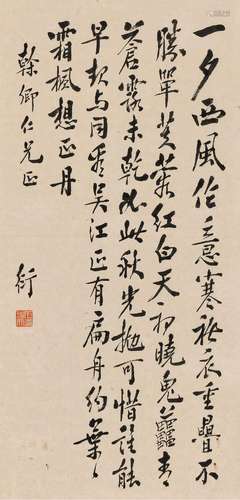 一夕西風作意寒秋衣重疊不
勝單芙蓉紅白天初曉兔藿青
蒼露未乾如此秋光拋可惜誰能
早起与同看吴江正有扁舟約葉〻
霜楓想正丹
榦卿仁兄正
衍